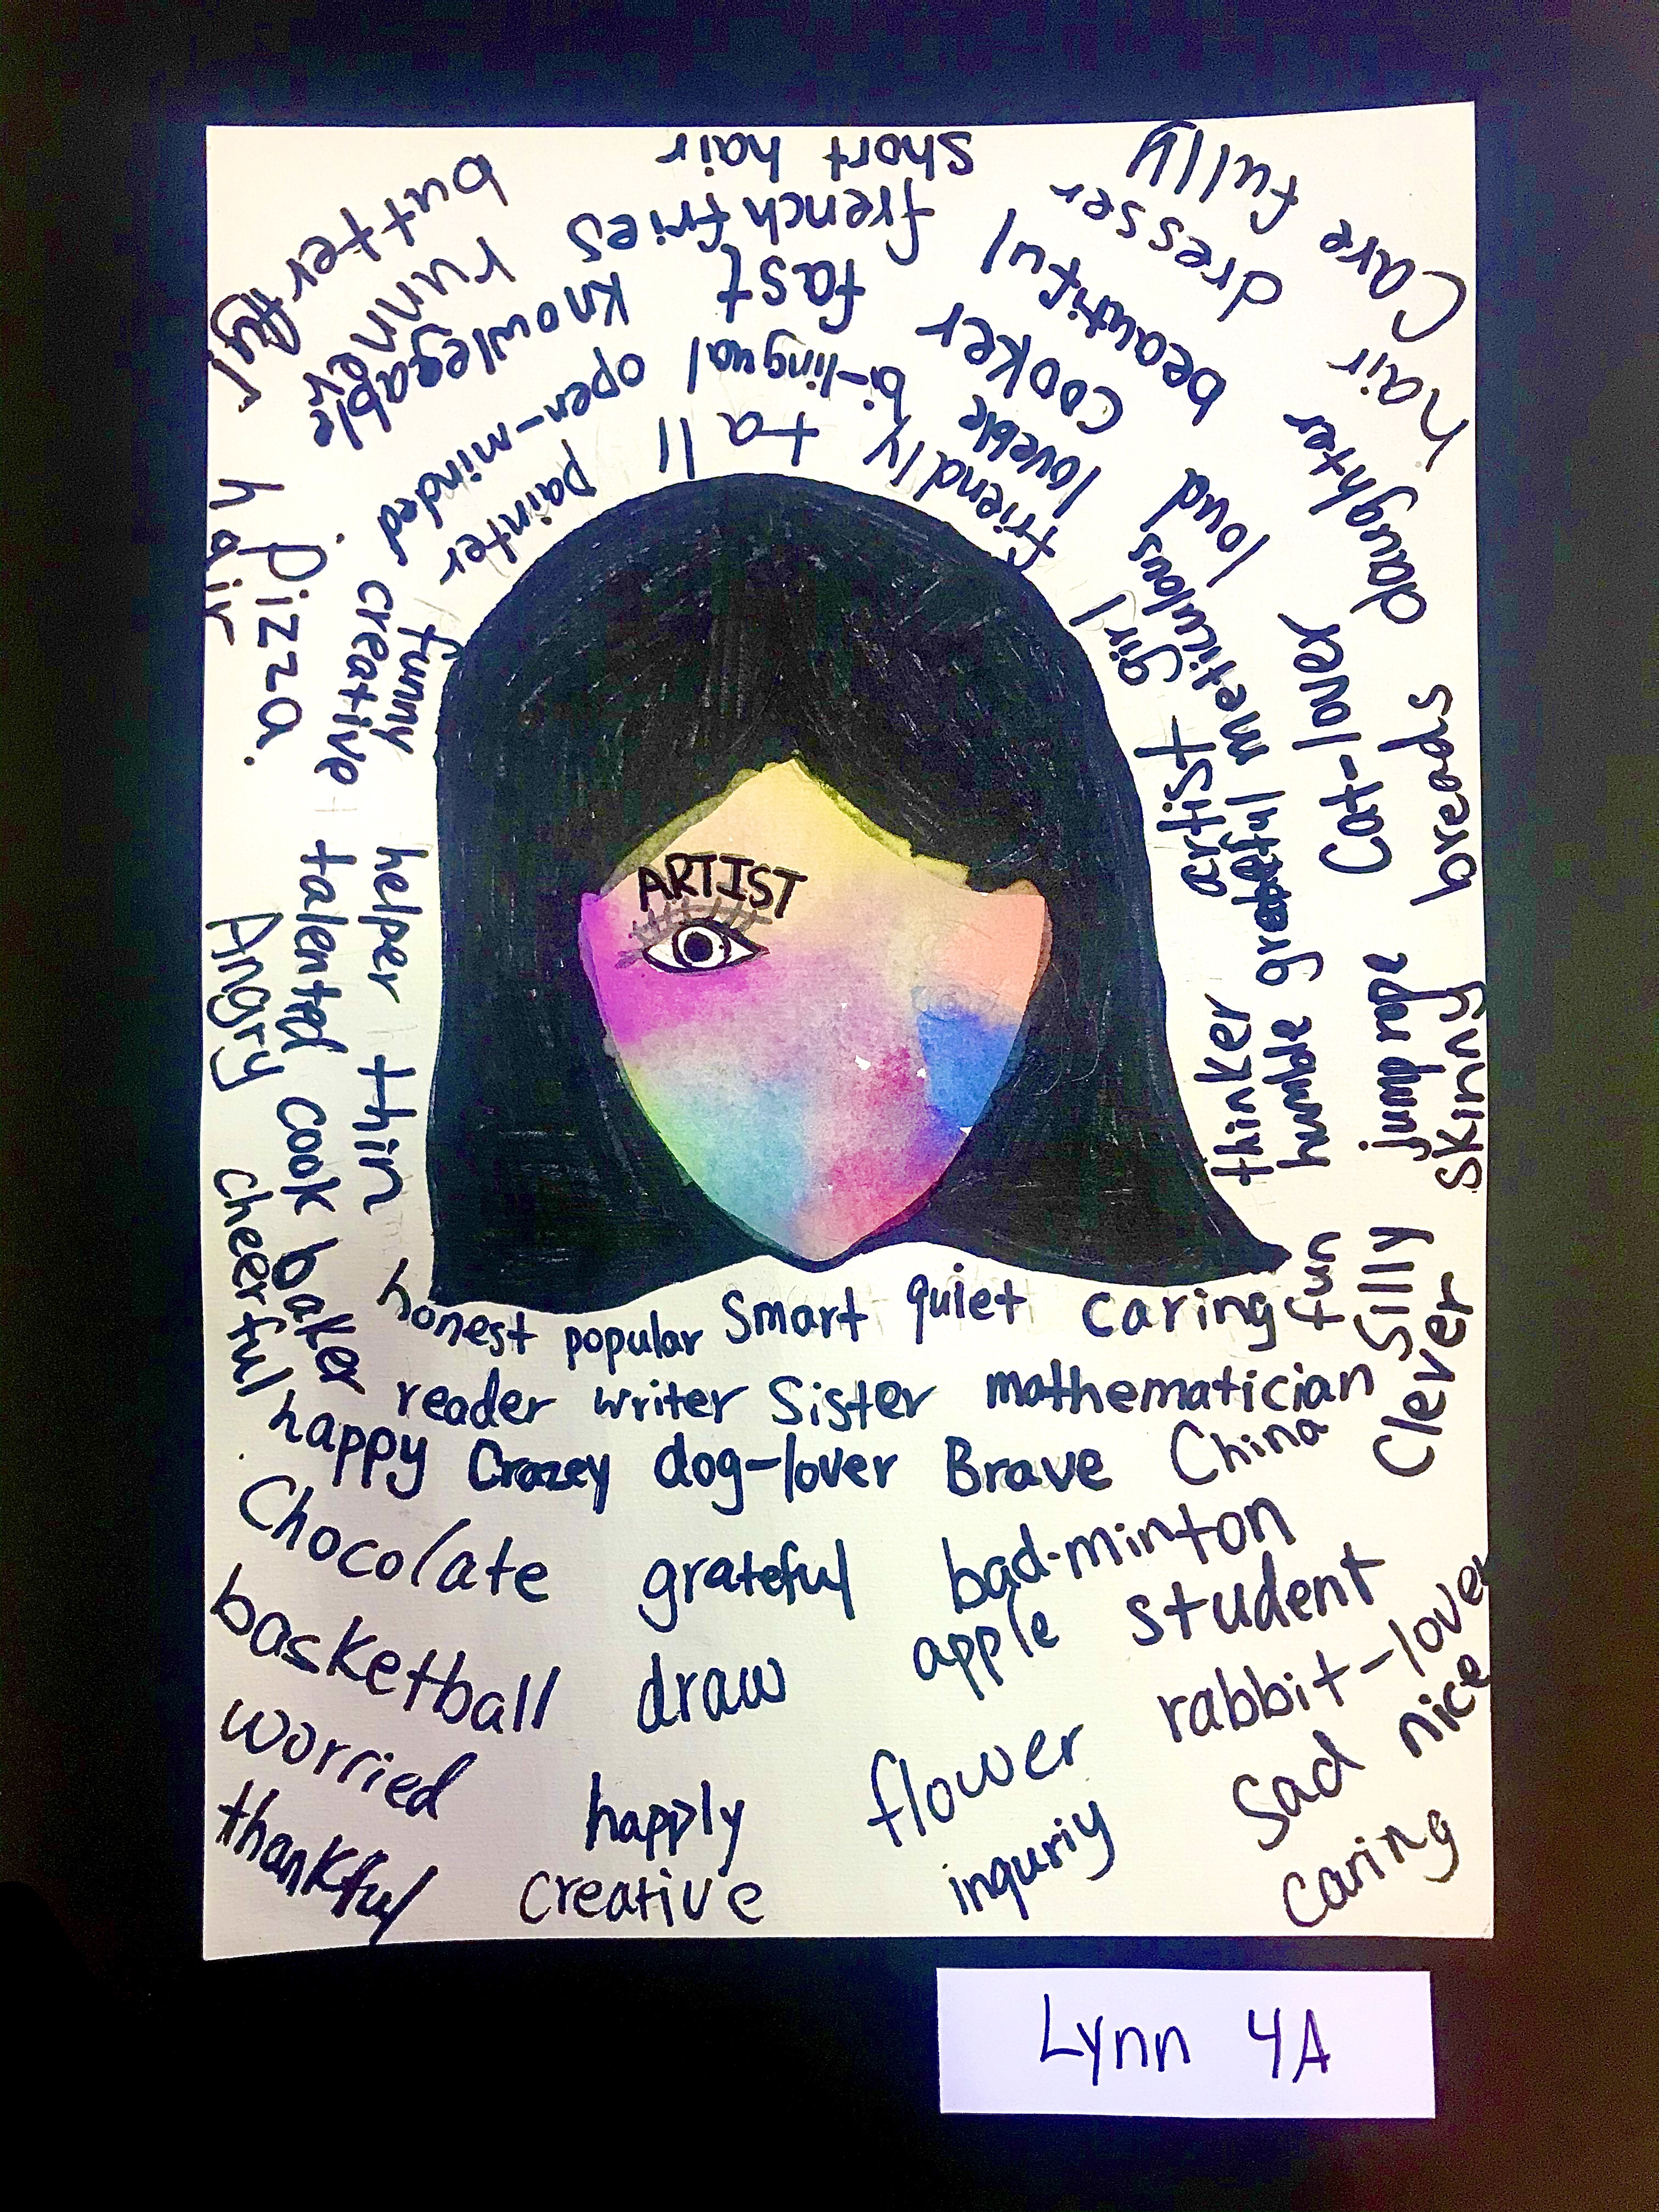 ARTIST
short hair
french fries
fast
bi-lingual
tall
butterfly
hair
runner
knowlegable
open-minded
painter
Pizza.
creative
funny
talented
helper
thin
cook
baker
Angry
cheerful
Care fully
dresser
beautiful
cooker
loveble
friendly
hair
daughter
loud
meticulous
girl
artist
breads
Cat-lover
grateful
humble
thinker
jump rope
skinny
Silly
Clever
fun
honest popular Smart quiet caring
reader writer Sister mathematician
happy Crazey dog-lover Brave China
Chocolate grateful bad-minton
basketball draw apple student
worried happly flower rabbit-lover
thankful creative inquriy Sad nice
caring
Lynn 4A